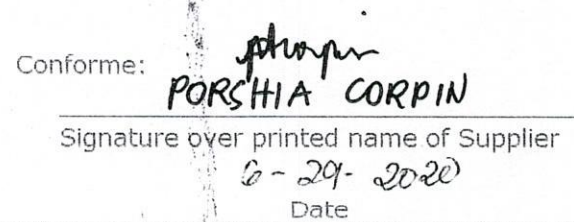 Conforme:
PORSHIA CORPIN
Signature over printed name of Supplier
6-29-2020
Date